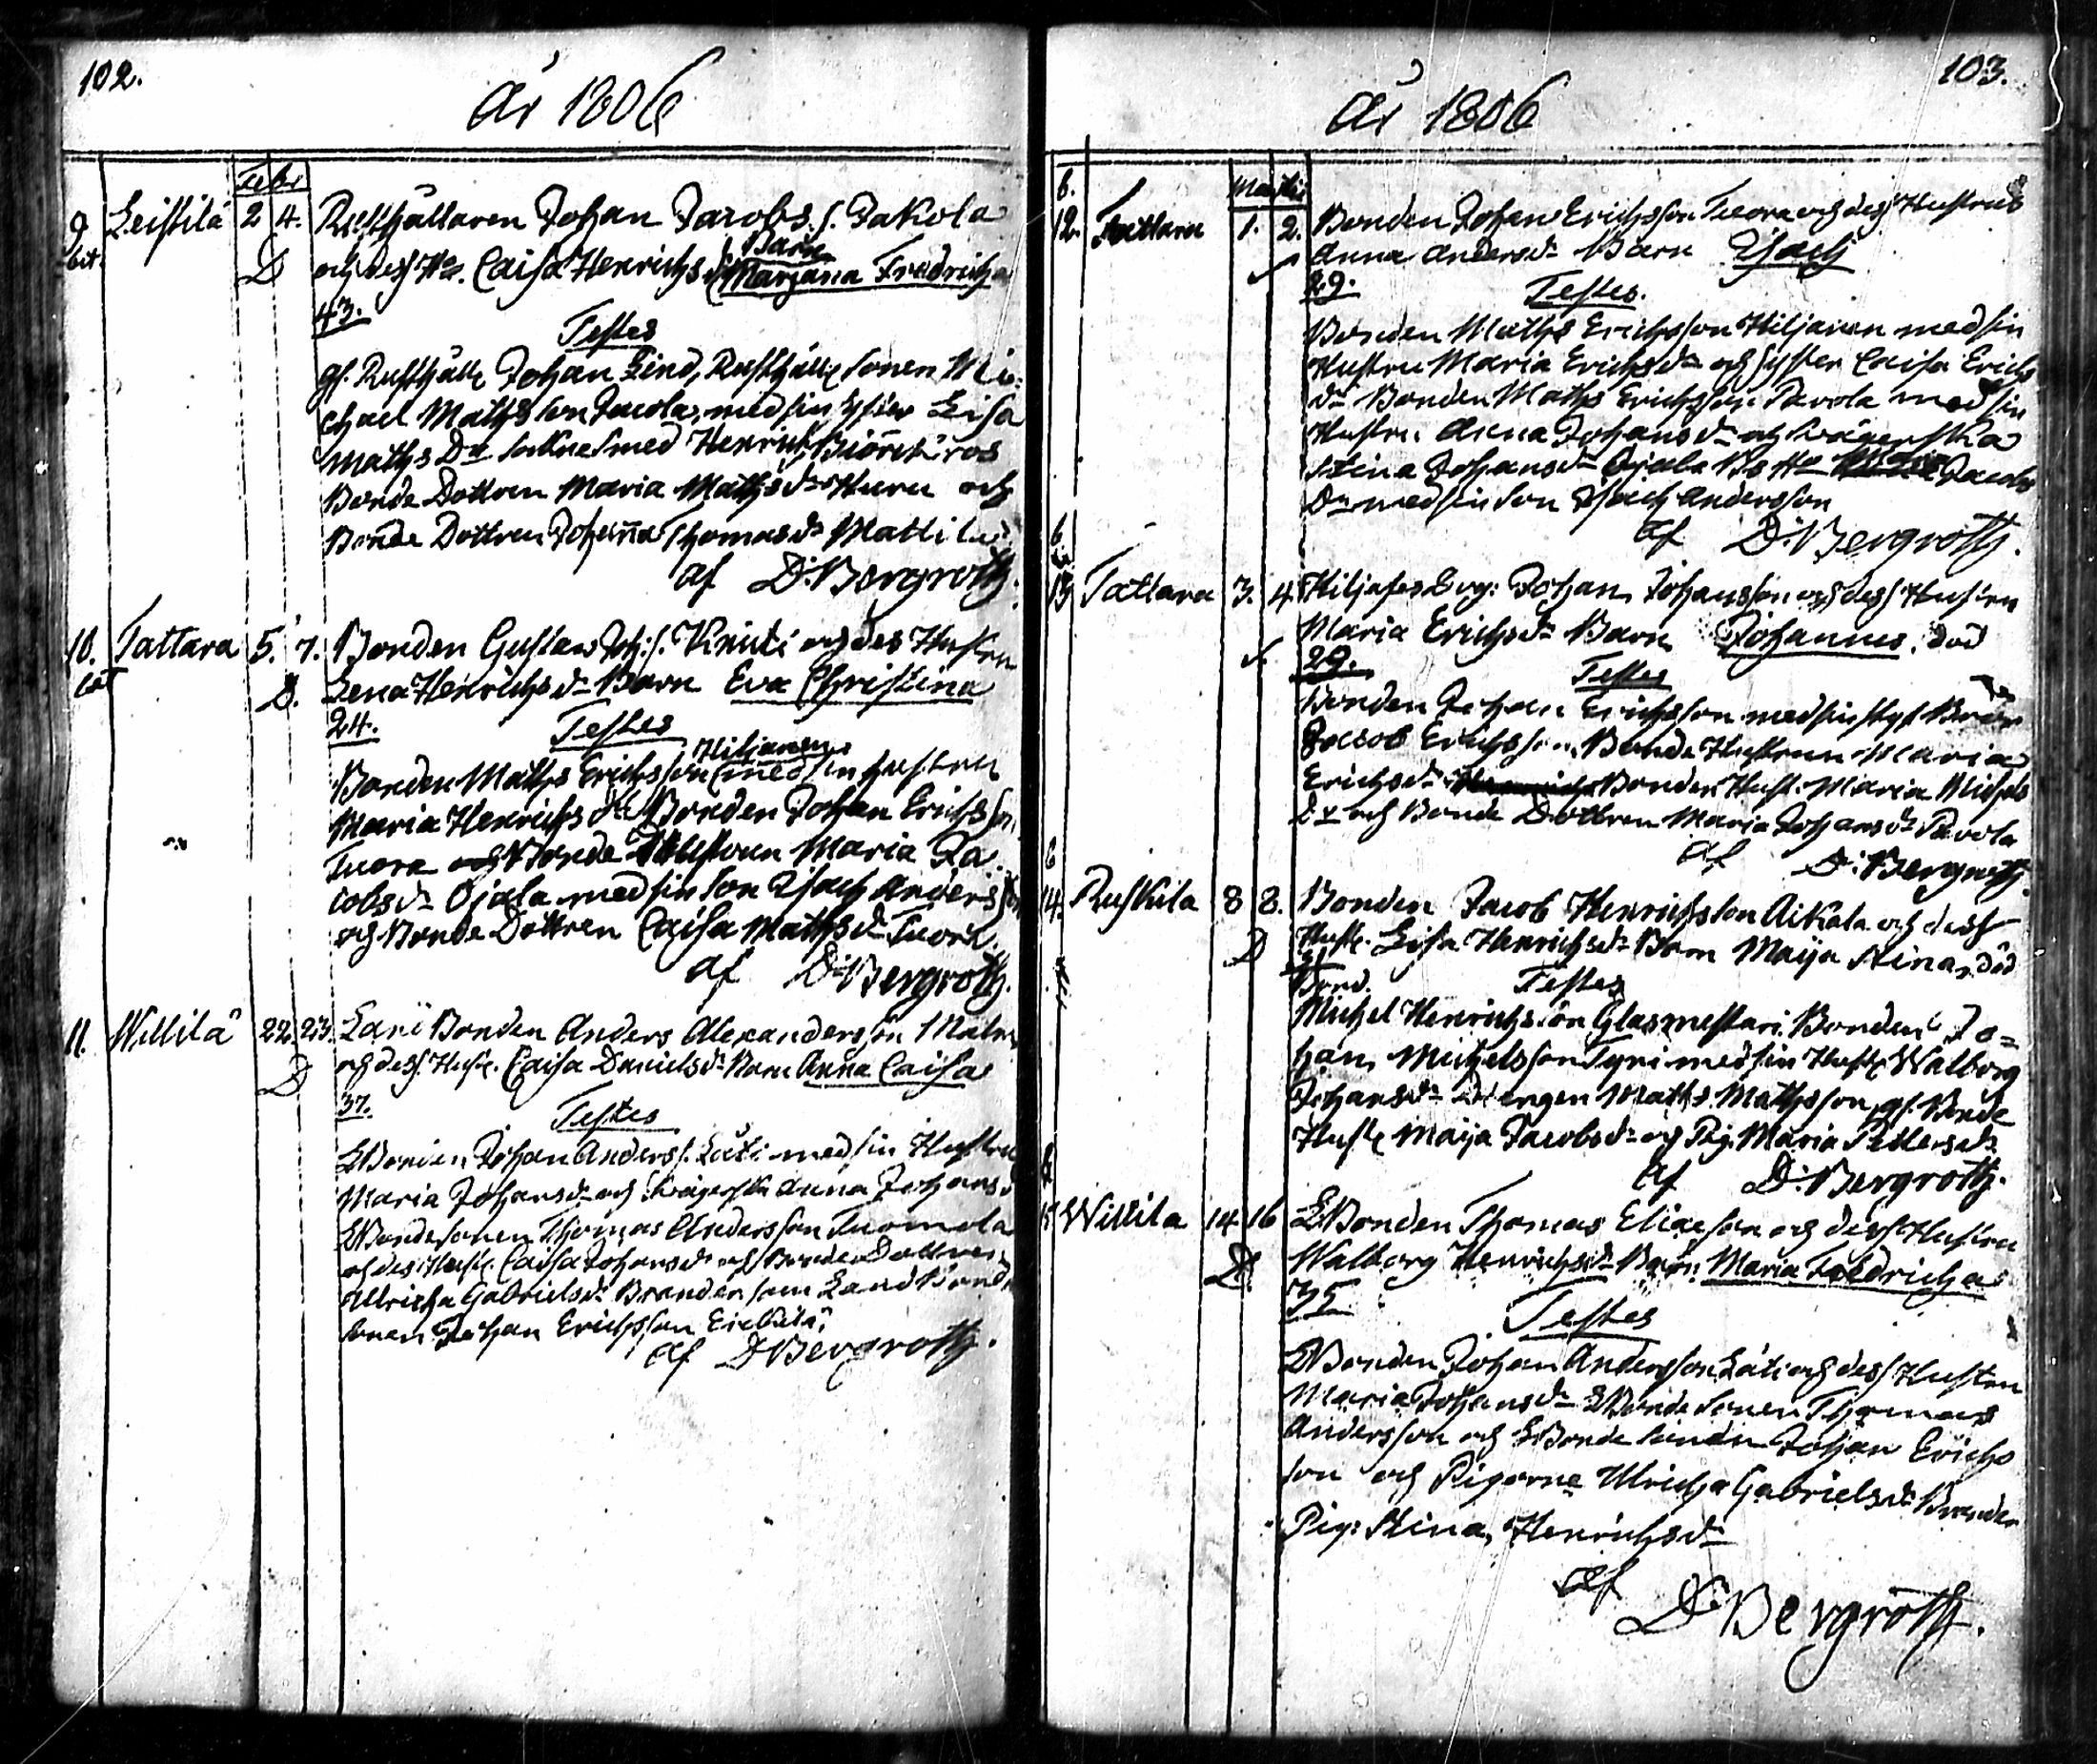 102.
År 1806
Febr
9 Leistilä 2 4. Rusthållaren Johan Jacobs. s. Jakola
Barn
och dess Ho. Caisa Henrichs dr Marjana Fredricha
D
43.
Testes
gl. Rusthålle Johan Lind, Rusthålle Sonen Mi-
chael Mathsson Jacola, med sin Syster Lisa
Maths Dr Sokne Smed Henrich Biörck
Bonde Dottren Maria Maths dr Huru och
Bonde Dottren Johanna Thomas dr Mattila
af D: Bergroth.
10. Tattara 5. 7. Bonden Gustav Joh: s. Knuti och des Hustru
D. Lena Henrichs dr Barn Eva Christina
24.
Testes
Hiljanen
Bonden Maths Erichsson med sin hustru
Maria Henrichs dr Bonden Johan Erichsson
Tuora och Bonde Hustrun Maria Ja-
cobs dr Ojala med sin Son Isach Andersson
och Bonde Dottren Caisa Maths dr Tuori.
af D: Bergroth.
11. Willilä 22. 23. Bonden Anders Alexandersson
D och des Hust. Caisa Daniels dr Barn Anna Caisa
37.
Testes
LBonden Johan Anders s. Läti med sin Hustru
Maria Johans dr och Svägerska Anna Johans d
LBondesonen Thomas Andersson Tuomola
och des Hust. Caisa Johans dr och Bonde Dottren
Ulricha Gabriels dr Brander samt Land Bonde
sonen Johan Erichsson Eickilä
af D: Bergroth.
103.
År 1806
Martii
12. Tattara 1. 2. Bonden Johan Erichsson Tuora och des Hustru
Anna Anders dr Barn Isach
29.
Testes.
Bonden Maths Erichsson Hiljanen med sin
Hustru Maria Erichs dr och Syster Caisa Erichs
dr Bonden Maths Erichsson Pavola med sin
Hustru Anna Johans dr och Svägerska
Stina Johans dr Ojala Bs Ho Maria Jacobs
Dr med sin Son Isach Andersson
af D: Bergroth.
13 Tattara 3. 4 Johan Johansson och des Hustru
Maria Erichs dr Barn Johannes. död
29.
Testes
Bonden Johan Erichsson med sin Bror
Jacob Erichsson, Bonde Hustrun Maria
Erichs dr Bonden Hust. Maria Michels
dr och Bonde Dottren Maria Johans dr Pavola
af D: Bergroth
14. Ruskila 8 8. Bonden Jacob Henrichsson Aikala och dess
D Hust. Lisa Henrichs dr Barn Maija Stina, död
Bond. Testes
Michel Henrichsson Glasmestari Bonden Jo=
han Michelsson Tyri med sin Hust. Walborg
Johans dr Drengen Maths Mathsson, gl. Bonde
Hust. Maija Jacobs dr och Pig. Maria Pettersdr
af D: Bergroth.
15 Willila 14 16 LBonden Thomas Eliaeson och dess Hustru
D Walborg Henrichs dr Barn Maria Fredricha
35
Testes
LBonden Johan Andersson Läti och dess Hustru
Maria Johans dr LBonde Sonen Thomas
Andersson och LBonde Johan Erichs
son och Pigorne Ulricha Gabriels dr Brander
Pig: Stina, Henrichs dr
af
D: Bergroth.